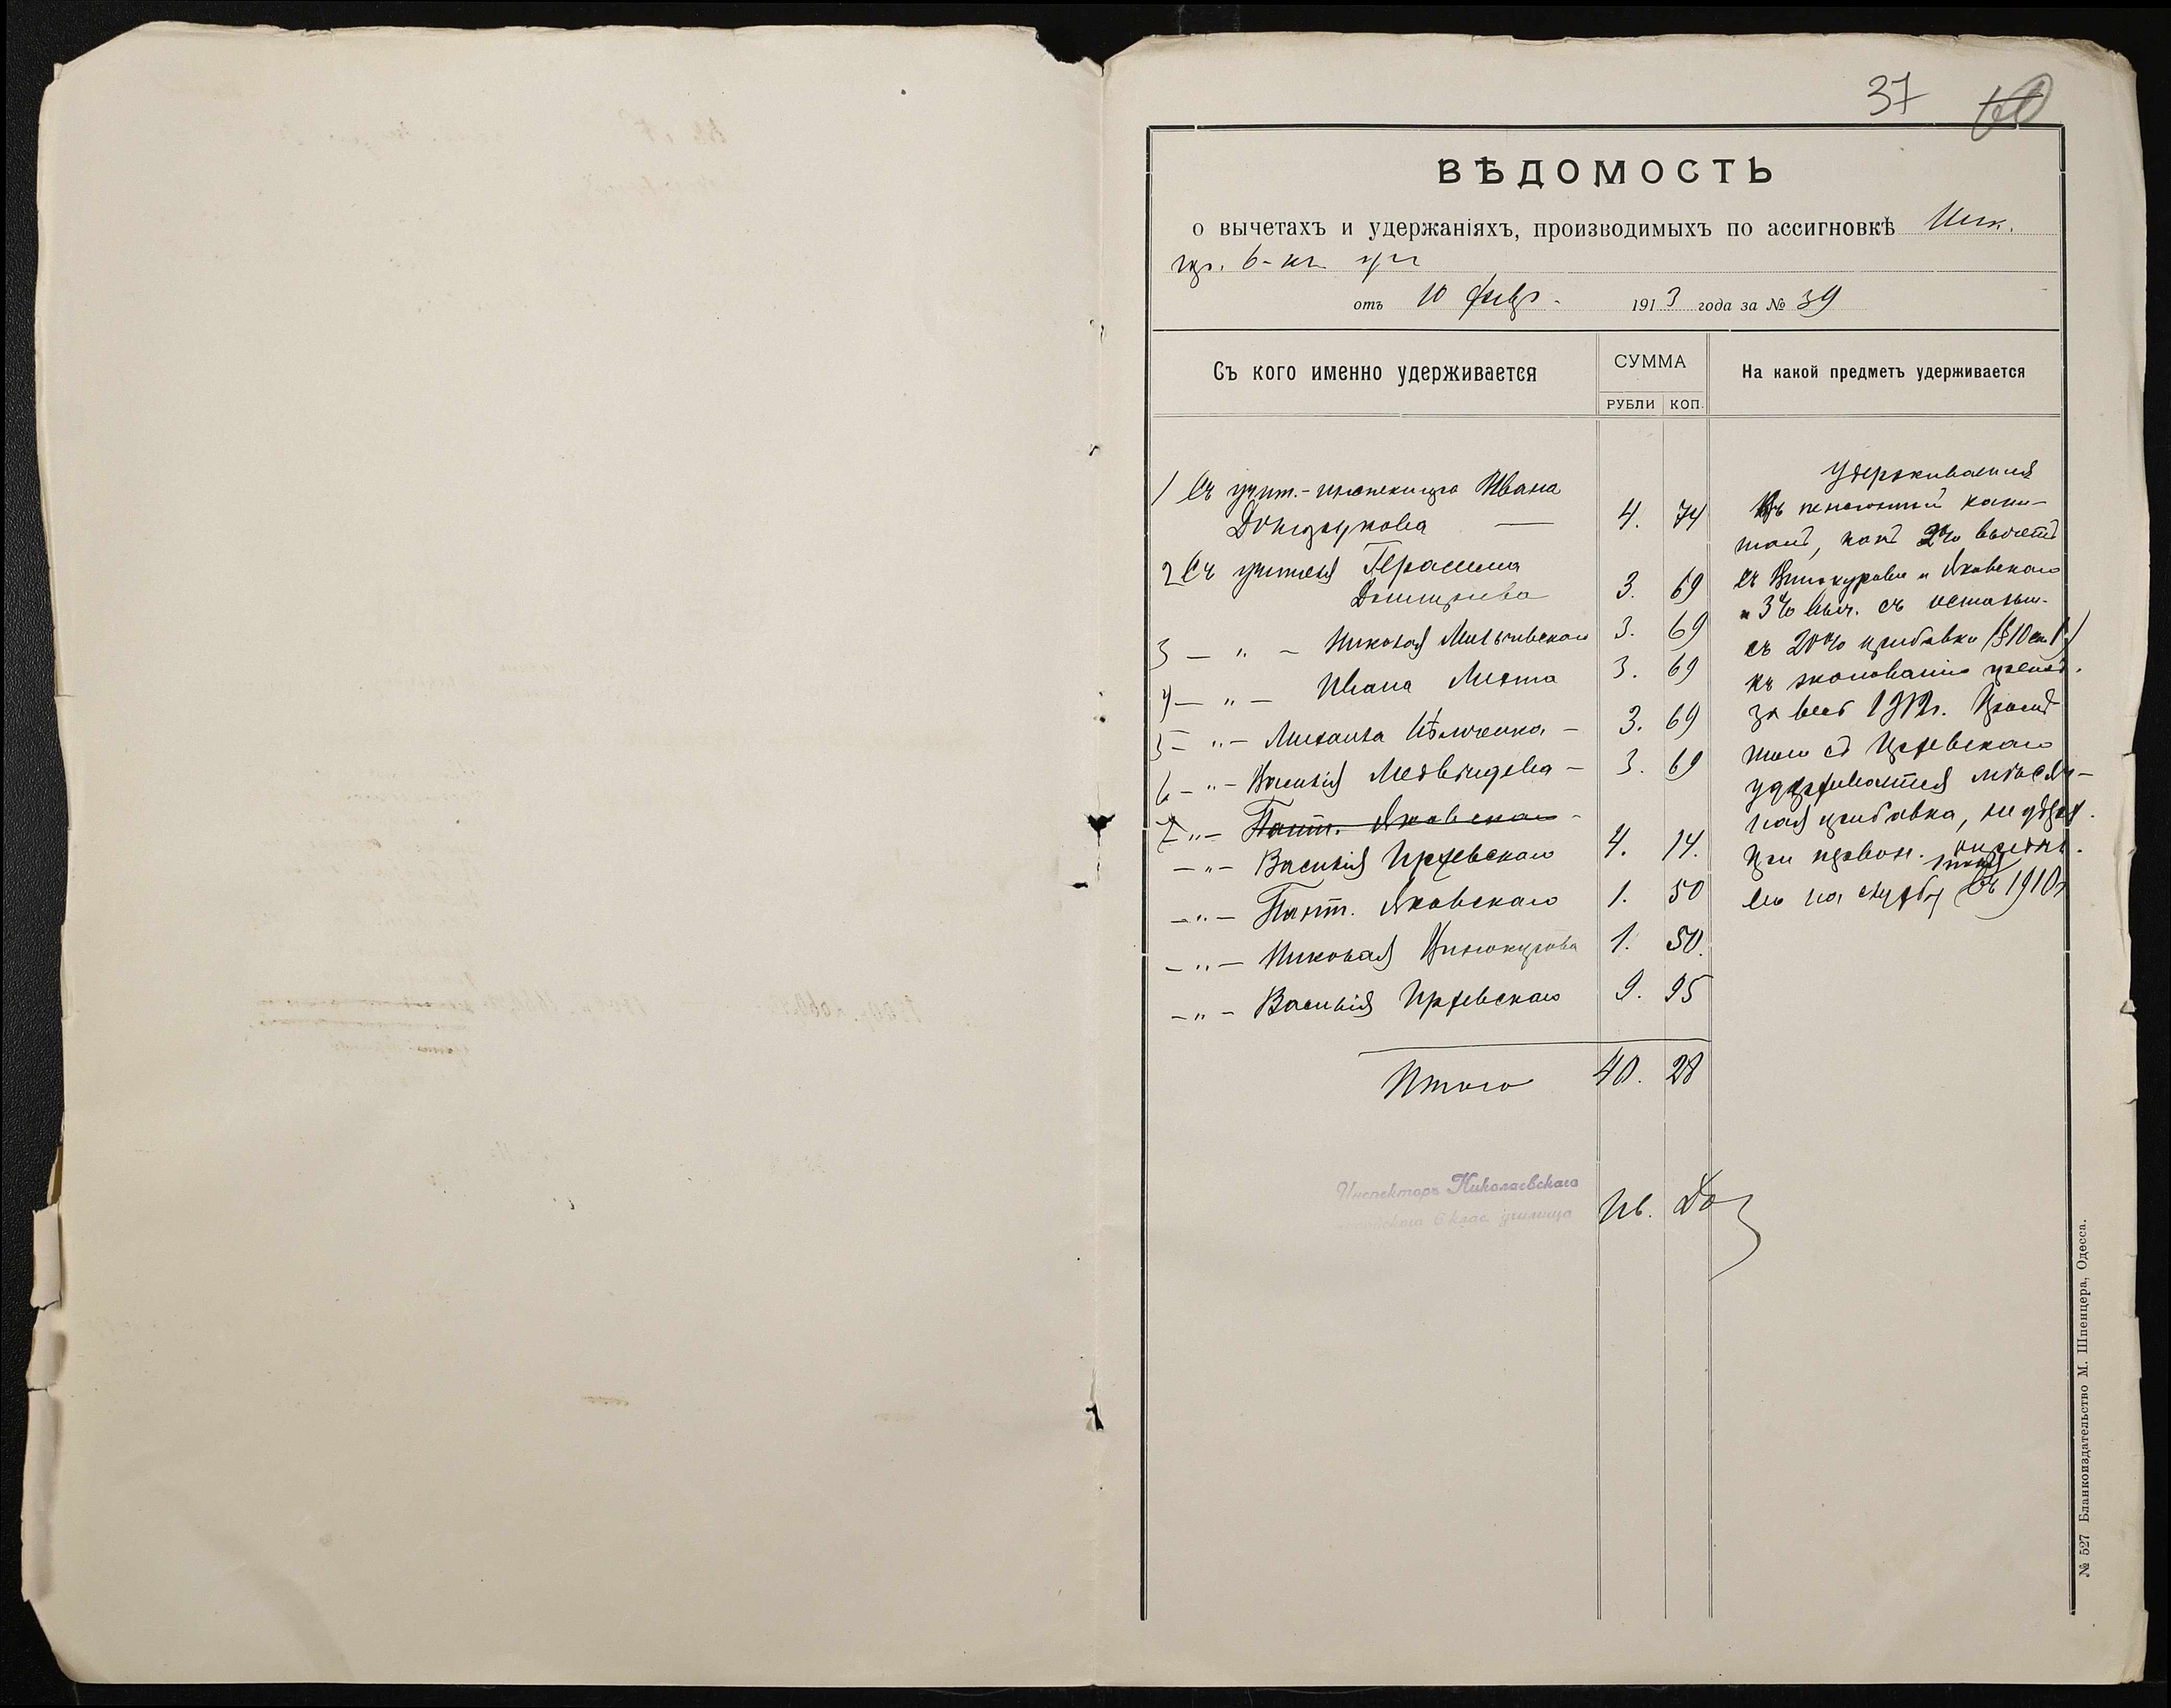 37 60
ВѢДОМОСТЬ
о вычетахъ и удержаніяхъ, производимыхъ по ассигновкѣ Ник.
гор. 6-кл. уч
отъ 10 февр. 1913 года за № 39
Съ кого именно удерживается
СУММА
На какой предметъ удерживается
РУБЛИ КОП.
1 Съ учит.-инспектора Ивана
4. 74
2 Съ учителя Герасима
Димитріева 3. 69
3 — „ — Николая 3. 69
4 — „ — Ивана Листа 3. 69
5 — „ — Михаила 3. 69
6 — „ — Василія Медвѣдева — 3. 69
7 „ — Пант. Яковскаго -
— „ — Василія Иржевскаго 4. 14.
— „ — Пант. Яковскаго 1. 50
— „ — Николая Винокурова 1. 50.
— „ — Василія Иржевскаго 9. 95
Итого 40. 28
Удерживается
въ пенсіонный капи-
талъ, какъ 2% вычетъ
съ Винокурова и Яковскаго
и 3% выч. съ остальн.
съ 20% прибавки (§ 10 ст. 1)
къ жалованію
за весь 1912 г. Кромѣ
того съ Иржевскаго
удерживается мѣсяч-
ная прибавка, не удерж.
при первон. опредѣл.
его на службу въ 1910 г
Инспекторъ Николаевскаго
городского 6 клас. училища
Ив. До
№ 527 Бланкоиздательство М. Шпенцера, Одесса.